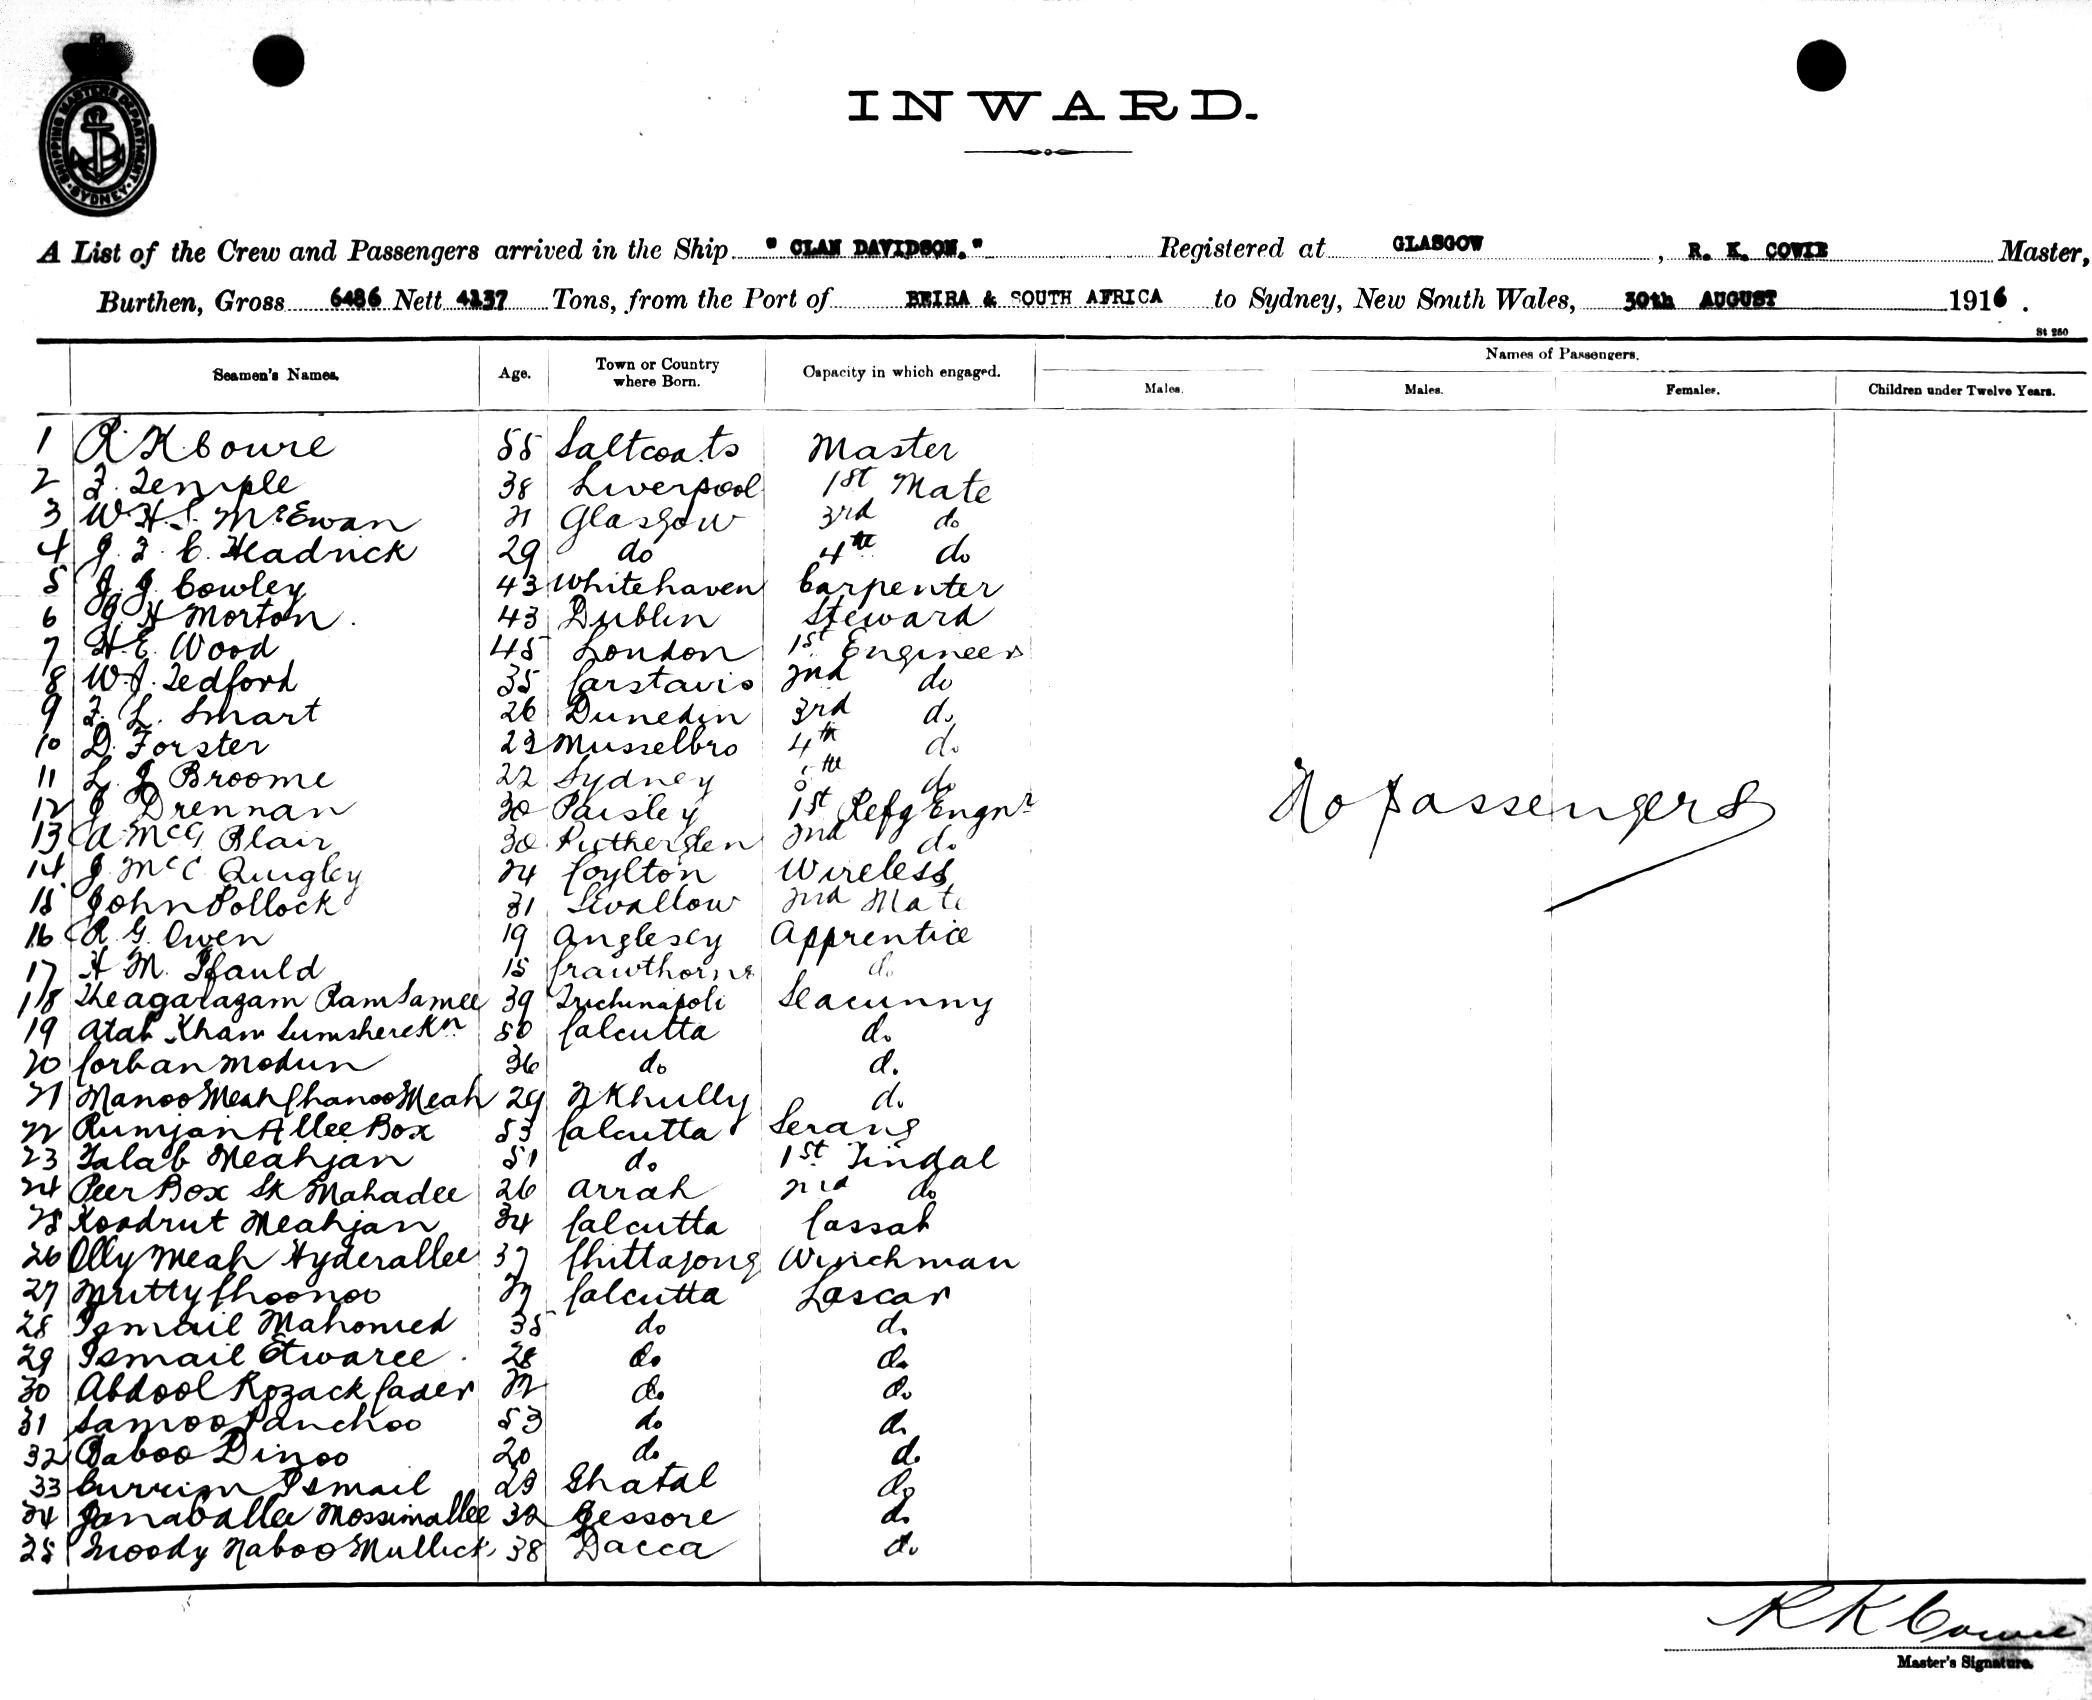 SHIPPING MASTERS DEPARTMENT
SYDNEY
INWARD.
A List of the Crew and Passengers arrived in the Ship " CLAN DAVIDSON." Registered at GLASGOW , R. K. COWIE Master,
Burthen, Gross 6486 Nett 4137 Tons, from the Port of BEIRA & SOUTH AFRICA to Sydney, New South Wales, 30th AUGUST 1916 .
St 250
Seamen's Names. Age. Town or Country where Born. Capacity in which engaged. Names of Passengers.
Males. Males. Females. Children under Twelve Years.
1 R K Cowie 55 Saltcoats Master
2 F. Temple 38 Liverpool 1st Mate
3 W. H. S. McEwan 21 Glasgow 3rd do
4 J. F. C. Headrick 29 do 4th do
5 J. J. Cowley 43 Whitehaven Carpenter
6 J. H Morton. 43 Dublin Steward
7 H. E. Wood 45 London 1st Engineer
8 W. J. Tedford 35 2nd do
9 F. L. Smart 26 Dunedin 3rd do
10 D. Forster 23 Musselbro 4th do
11 L. J Broome 22 Sydney 5th do
12 J Drennan 30 Paisley 1st Refg Engnr
13 A McG Blair 30 Rutherglen 2nd do
14 J. McC Quigley 24 Coylton Wireless
15 John Pollock 31 Swallow 2nd Mate
16 R. G. Owen 19 Anglesey Apprentice
17 H M. Ifauld 15 Crawthorne do
18 Theagaragam Ramsamee 39 Trichinapoli Seacunny
19 Atab Khan Sumsherekn 50 Calcutta do
20 Corban Modun 36 do do
21 Manoo Meah Chanoo Meah 29 N Khully do
22 Rumjan Allee Box 53 Calcutta Serang
23 Talab Meahjan 51 do 1st Tindal
24 Peer Box Sk Mahadee 26 Arrah 2nd do
25 Koodrut Meahjan 34 Calcutta Cassab
26 Olly Meah Hyderallee 37 Chittagong Winchman
27 Mutty Choonoo 27 Calcutta Lascar
28 Ismail Mahomed 35 do do
29 Ismail Etwaree 28 do do
30 Abdool Rozack Cader 22 do do
31 Samoo Panchoo 53 do do
32 Baboo Dinoo 20 do do
33 Currim Ismail 23 Ghatal do
34 Jonaballee Mossimallee 32 Jessore do
35 Moody Naboo Mullick 38 Dacca do
No Passengers
R K Cowie
Master's Signature.